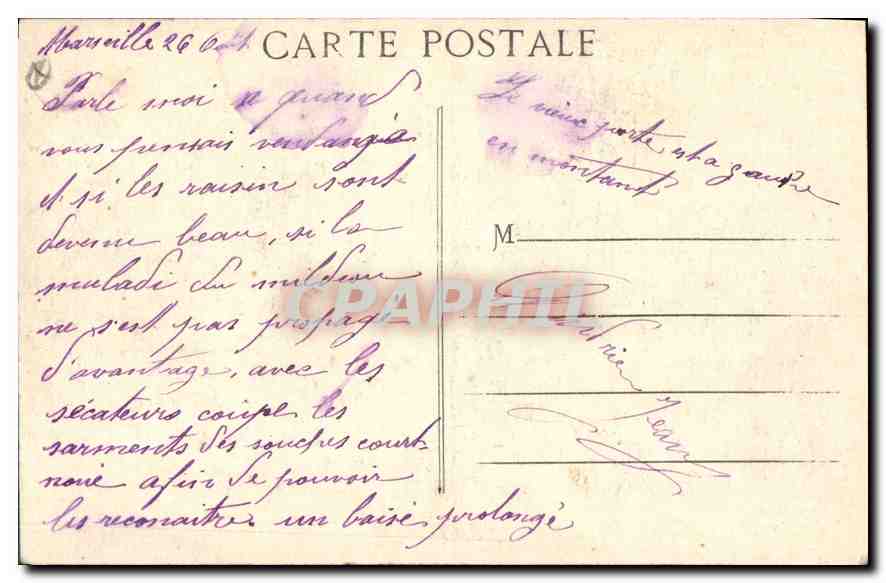 Marseille 26 Out
CARTE POSTALE
Parle moi a quand
vous pensais vendangé
et si les raisin sont
devenu beau, si la
maladi du mildiou
ne s'est pas propagé
d'avantage, avec les
sécateurs coupe les
sarments des souches court-
noué afin de pouvoir
les reconaitre un baisé prolongé
Le vieux porte est a gauche
en montant
M
CPAPHIL
Adrien
Jean